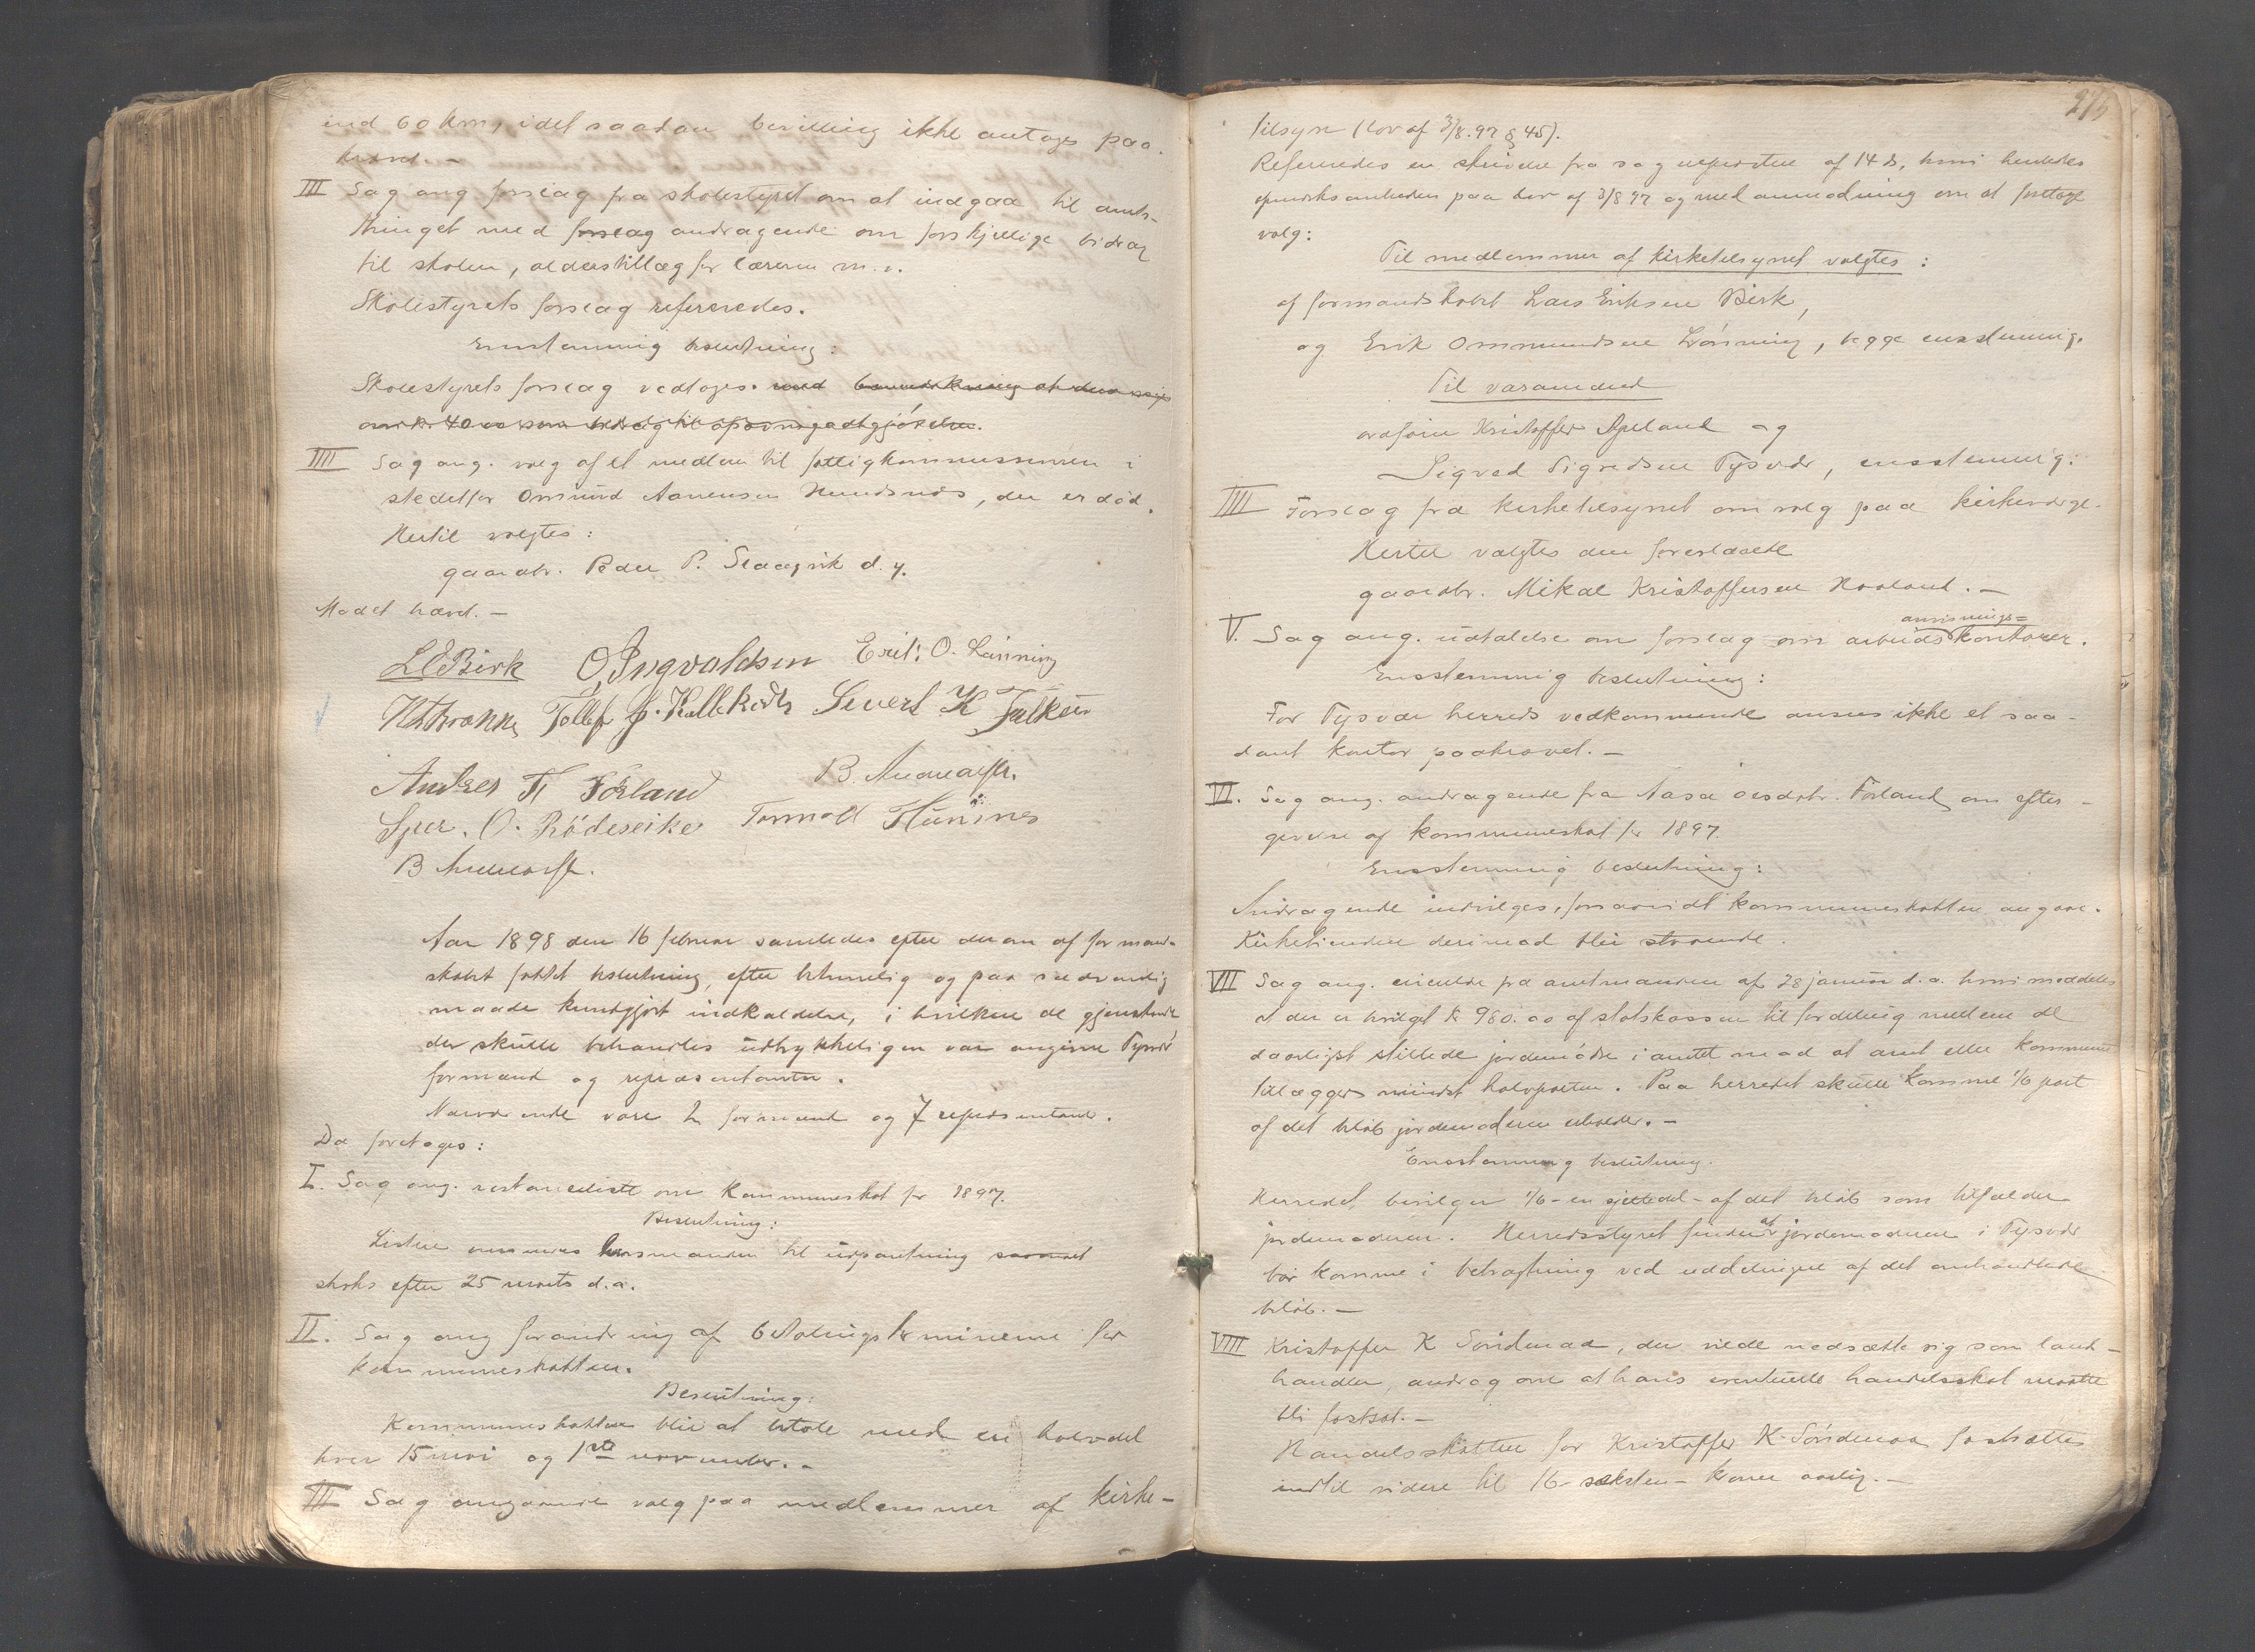 ind 60 km, idet saadan bevilling ikke antages paa-
krævet. –
III Sag ang forslag fra skolestyret om at indgaa til amts-
thinget med forslag andragende om forskjellige bidrag
til skolen, alderstillæg for læreren m. v.
Skolestyrets forslag refereredes.
Enstemmig beslutning:
Skolestyrets forslag vedtoges. med bemærkning at
IIII Sag ang. valg af et medlem til fattigkommissionen i
stedetfor Omund Aanensen Hundsnæs, der er död.
Hertil valgtes:
gaardbr. Peder P. Slaagvik d. y.
Mødet hævet. –
L E Birk O. Ingvaldsen Erik O. Lønning
Tollef J. Sivert K Falkeid
Andres T. Førland B. Aadnasen
Sjur. O. Rödeseike Tormod
B Aadnasen.
Aar 1898 den 16 februar samledes efter derom af formand-
skabet fattet beslutning, efter betimelig og paa sædvanlig
maade kundgjort indkaldelse, i hvilken de gjenstande
der skulde behandles udtrykkeligen var angivne Tysvær
formænd og repræsentanter.
Nærværende vare 2 formænd og 7 repræsentanter.
Da foretoges:
I. Sag ang. restanceliste om kommuneskat for 1897.
Beslutning:
Listen lensmanden til udpantning
straks efter 25 marts d.a.
II. Sag ang forandring af betalingsterminerne for
kommuneskatten.
Beslutning:
Kommuneskatten blir at betale med en halvdel
hver 15 mai og 1ste november. –
III Sag angaaende valg paa medlemmer af kirke-
275
tilsyn (Lov af 3/8. 97 § 45).
Refereredes en skrivelse fra sogneprästen af 14 ds, hvori henledes
opmerksomheden paa lov af 3/8 97 og med anmodning om at foretage
valg:
Til medlemmer af kirketilsynet valgtes:
af formandskabet Lars Eriksen Birk,
og Erik Ommundsen Lönning, begge enstemmig.
Til varamænd
ordförer Kristoffer Apeland og
Sigvad Sigvadsen Tysvær, enstemmig.
IIII Forslag fra kirketilsynet om valg paa kirkeverge.
Hertil valgtes den foreslaaede
gaardbr. Mikal Kristoffersen Haaland. –
V. Sag ang. udtalelse om forslag om arbeidsanvisnings=kontorer.
Enstemmig beslutning:
For Tysvær herreds vedkommende ansees ikke et saa-
dant kontor paakrævet. –
VI. Sag ang. andragende fra Aasa Førland om efter-
givelse af kommuneskat for 1897.
Enstemmig beslutning:
Andragende indvilges, forsaavidt kommuneskatten angaar.
Kirketienden derimod blir staaende.
VII Sag ang. skrivelse fra amtmanden af 28 januar d.a. hvori meddeles
at der er bevilget k 980.00 af statskassen til fordeling mellem de
daarligst stillede jordemödre i amtet mod at amt eller kommune
tillægger mindst halvparten. Paa herredet skulde komme 1/6 part
af det belöb jordemoderen erholder. –
Enstemmig beslutning.
Herredet bevilger 1/6 – en sjettedel – af det belöb som tilfalder
jordemoderen. Herredsstyret finder at jordemoderen i Tysvær
bör komme i betragtning ved uddelingen af det omhandlede
belöb. –
VIII Kristoffer K Söndenaa, der vilde nedsætte sig som land-
handler, androg om at hans eventuelle handelsskat maatte
bli fastsat. –
Handelsskatten for Kristoffer K. Söndenaa fastsættes
indtil videre til 16 – seksten – kroner aarlig. –